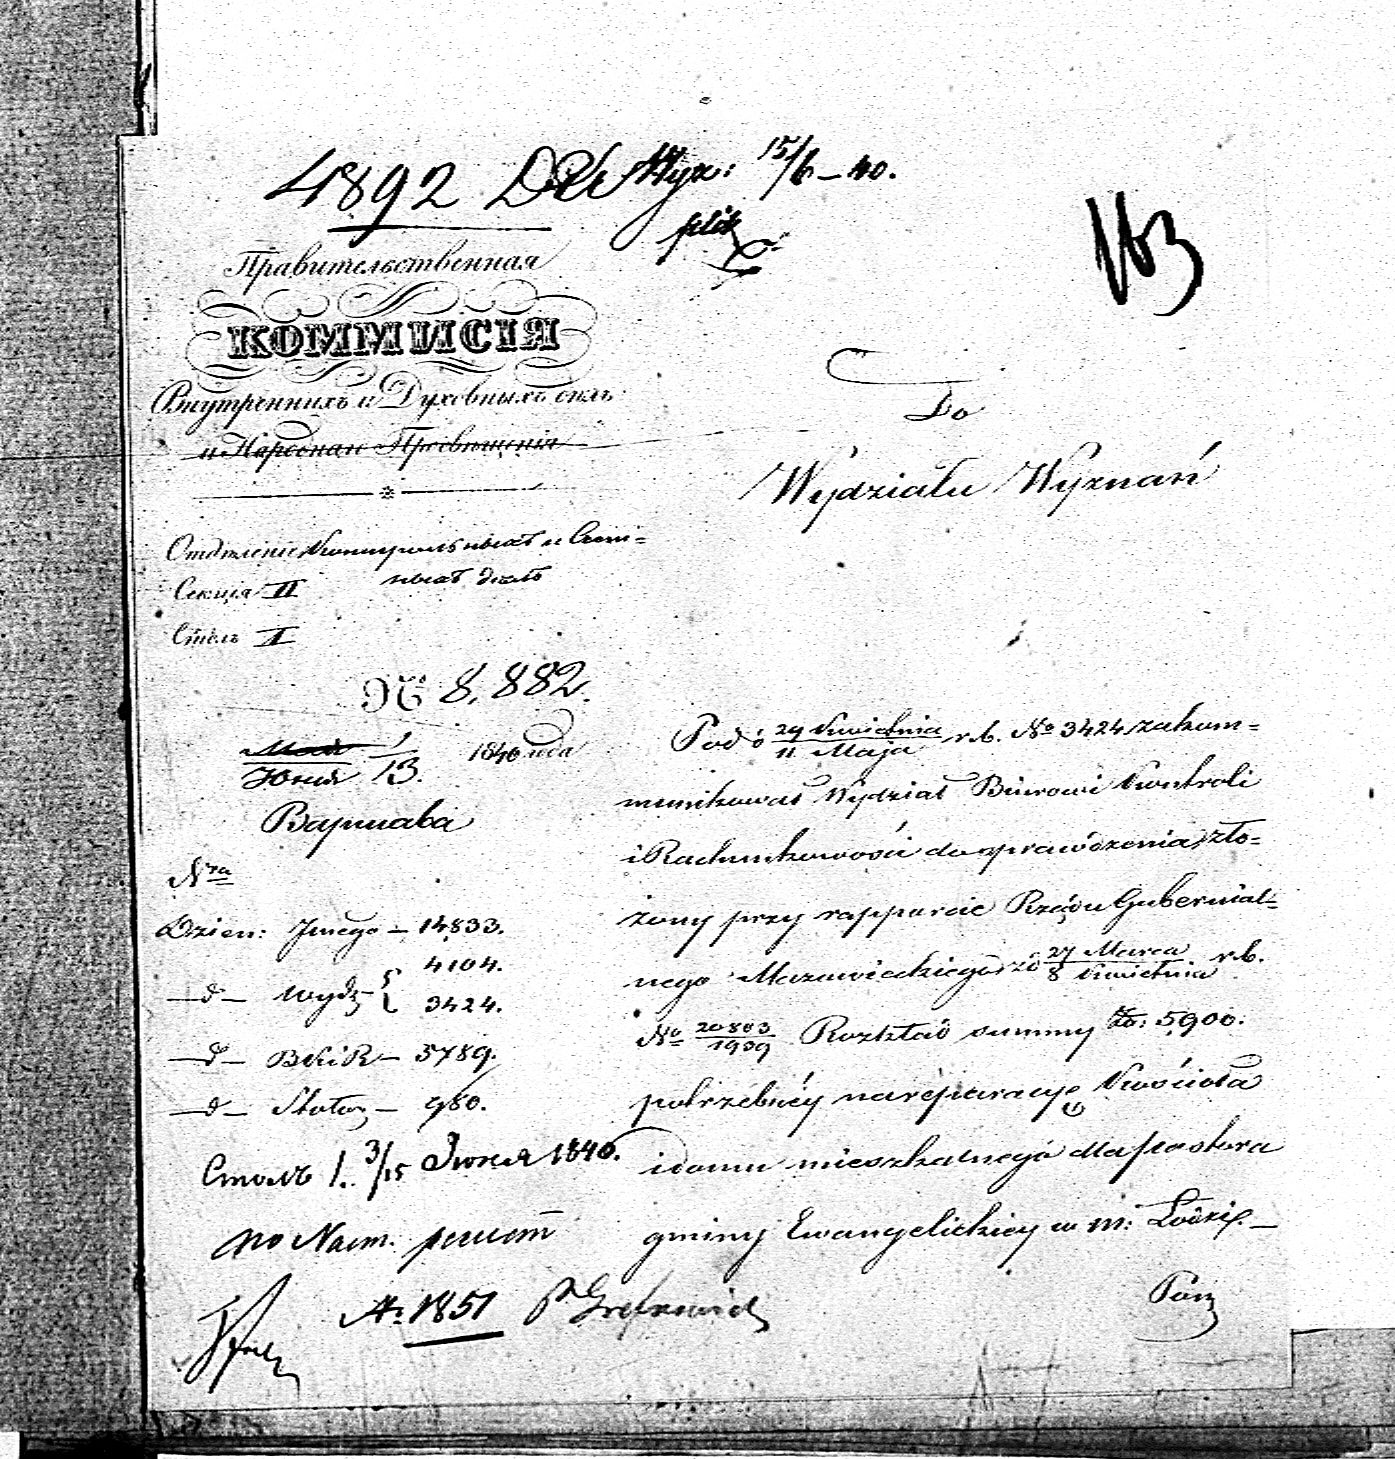 4892 Wyz: 15/6 – 40.
163
Правительственная
КОММИСІЯ
Внутреннихъ и Духовныхъ дѣлъ
и Народнаго Просвѣщенія
До
Wydziału Wyznań
Отдѣленіе Контрольныхъ и Счет=
ныхъ дѣлъ
Секція II
Столъ I
№ 8,882.
Мая 1 1840 года
Юня 13.
Варшава
Nra
Dzien: Jnego – 14833.
4104.
–d– Wydz – { 3424.
–d– BKiR – 5789.
–d– Stołu – 980.
Столъ 1. 3/15 Июня 1840.
№ 1851
Pod d 29 Kwietnia / 11 Maja r.b. No 3424 zakom=
munikował Wydział Biurowi Kontroli
i Rachunkowości do sprawdzenia, zło=
żony przy rapporcie Rządu Gubernial=
nego Mazowieckiego z d 27 Marca / 8 Kwietnia r.b.
No 20803/1939 Rozkład summy Zło: 5900.
potrzebnéy na réparacyę Kościoła
i domu mieszkalnego dla Pastora
gminy Ewangelickiey w m: Łodzi. –